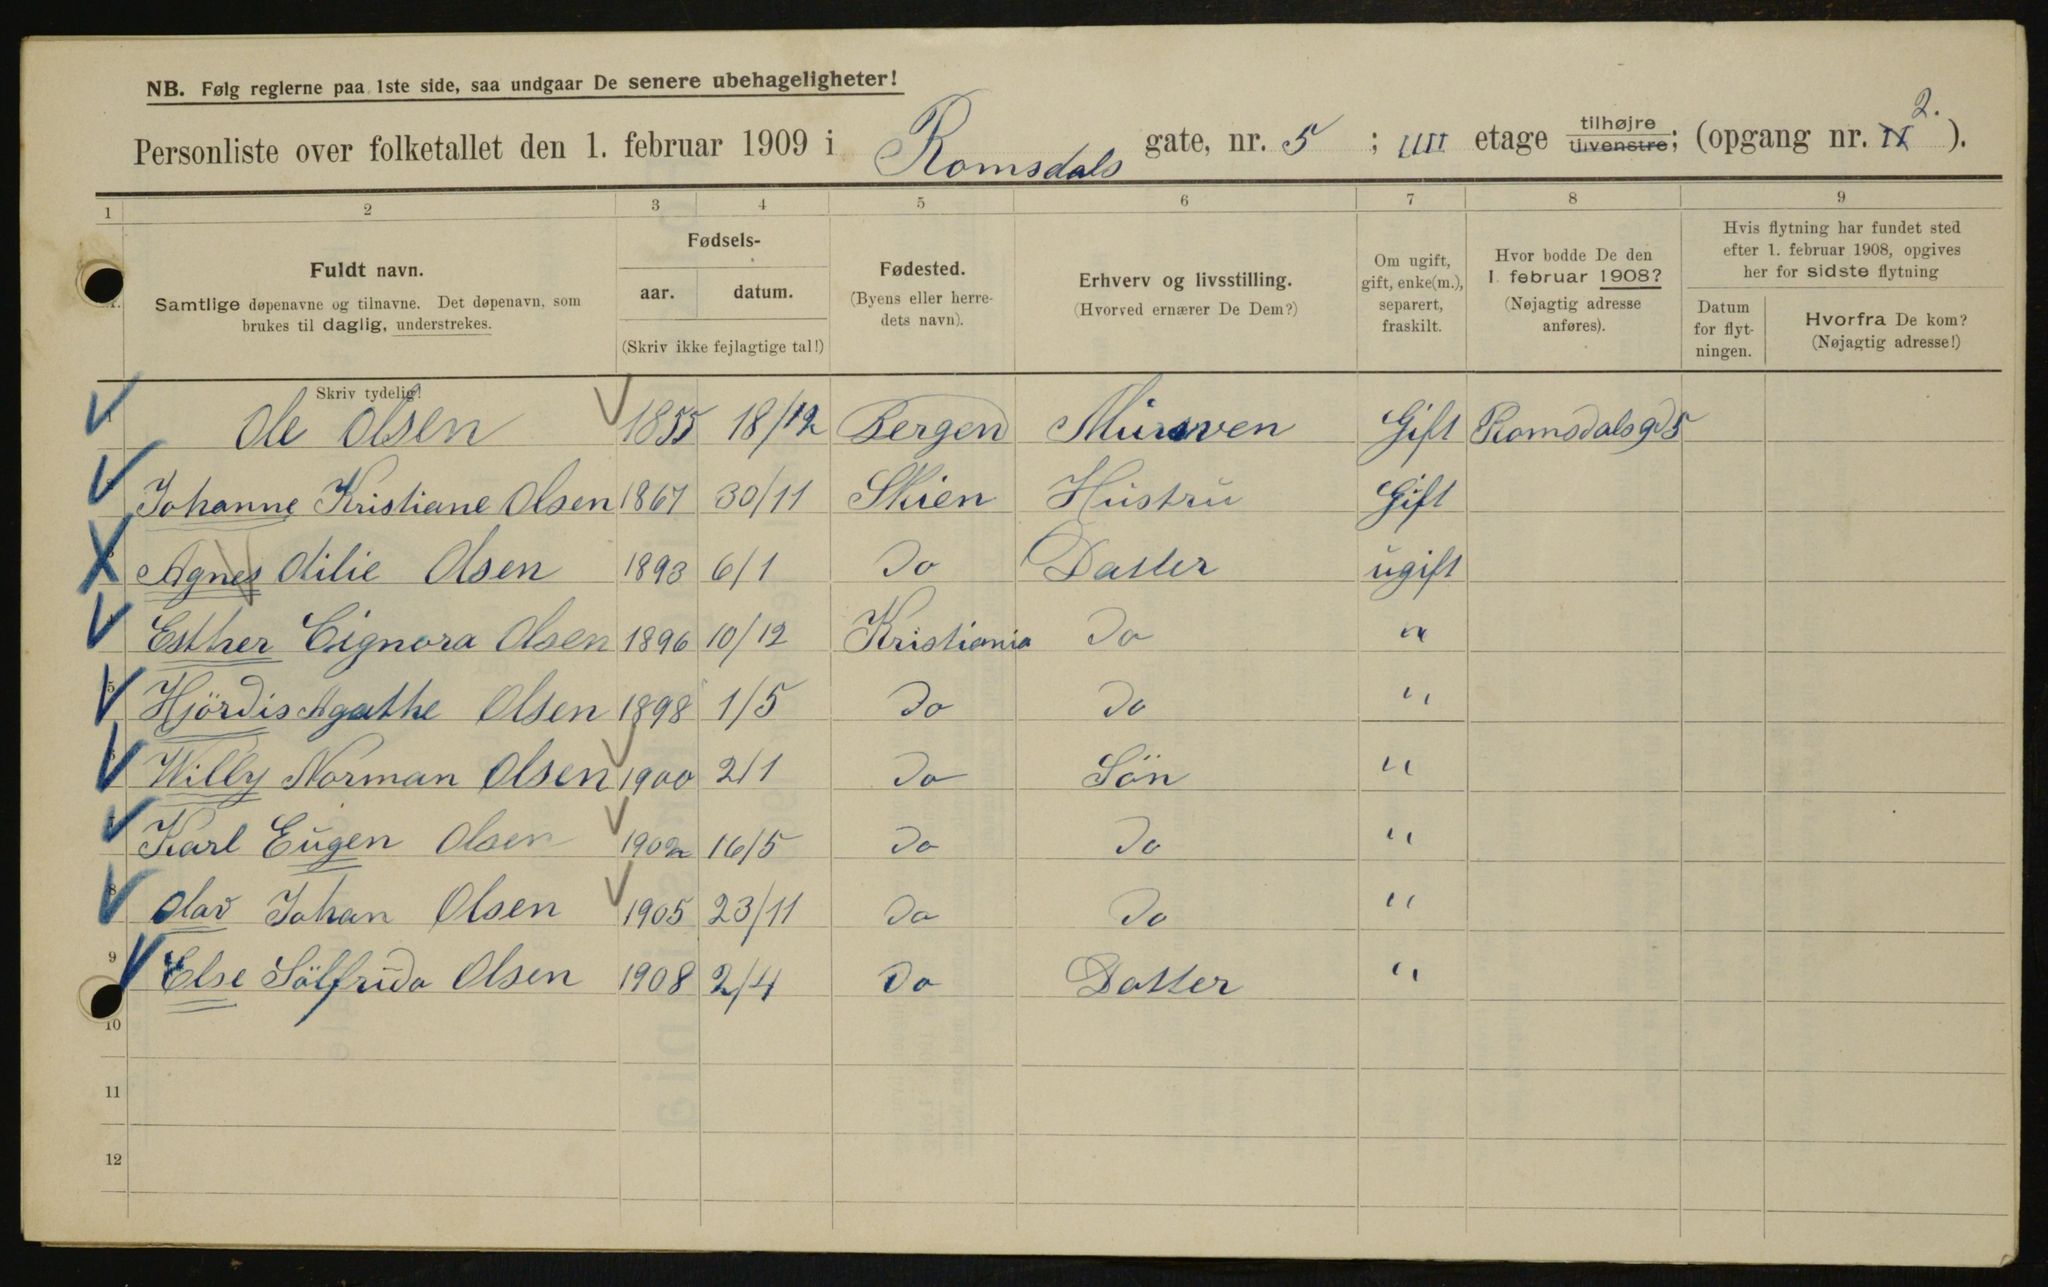 NB. Følg reglerne paa 1ste side, saa undgaar De senere ubehageligheter!
Personliste over folketallet den 1. februar 1909 i Romsdals gate, nr. 5 ; IIII etage tilhøjre tilvenstre; (opgang nr. II 2. ).
1 2 3 4 5 6 7 8 9
Fuldt navn.
Samtlige døpenavne og tilnavne. Det døpenavn, som
brukes til daglig, understrekes.
Fødsels-
aar. datum.
(Skriv ikke fejlagtige tal!)
Fødested.
(Byens eller herre-
dets navn).
Erhverv og livsstilling.
(Hvorved ernærer De Dem?)
Om ugift,
gift, enke(m.),
separert,
fraskilt.
Hvor bodde De den
1. februar 1908?
(Nøjagtig adresse
anføres).
Hvis flytning har fundet sted
efter 1. februar 1908, opgives
her for sidste flytning
Datum
for flyt-
ningen.
Hvorfra De kom?
(Nøjagtig adresse!)
Skriv tydelig!
Ole Olsen 1855 18/12 Bergen Gift Romsdalsgd 5
Johanne Kristiane Olsen 1867 30/11 Skien Hustru Gift
Agnes Otilie Olsen 1893 6/1 Do Datter ugift
Esther Cignora Olsen 1896 10/12 Kristiania Do "
5 Hjördis Agathe Olsen 1898 1/5 Do Do "
6 Willy Norman Olsen 1900 2/1 Do Sön "
7 Karl Eugen Olsen 1902 16/5 Do Do "
8 Olav Johan Olsen 1905 23/11 Do Do "
9 Else Sölfrida Olsen 1908 2/4 Do Datter "
10
11
12